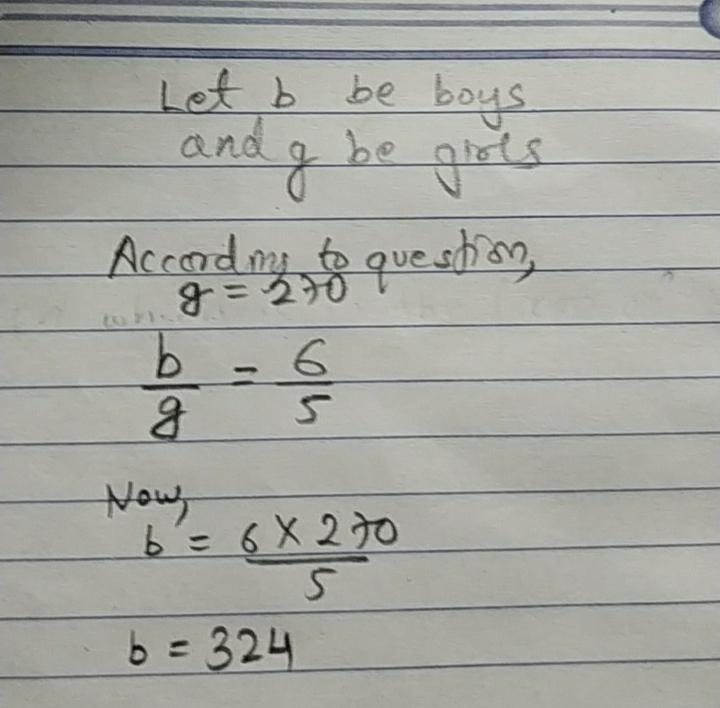 Let b be boys
and g be girls
According to question,
g = 270
b/g = 6/5
Now,
b = 6 X 270/5
b = 324